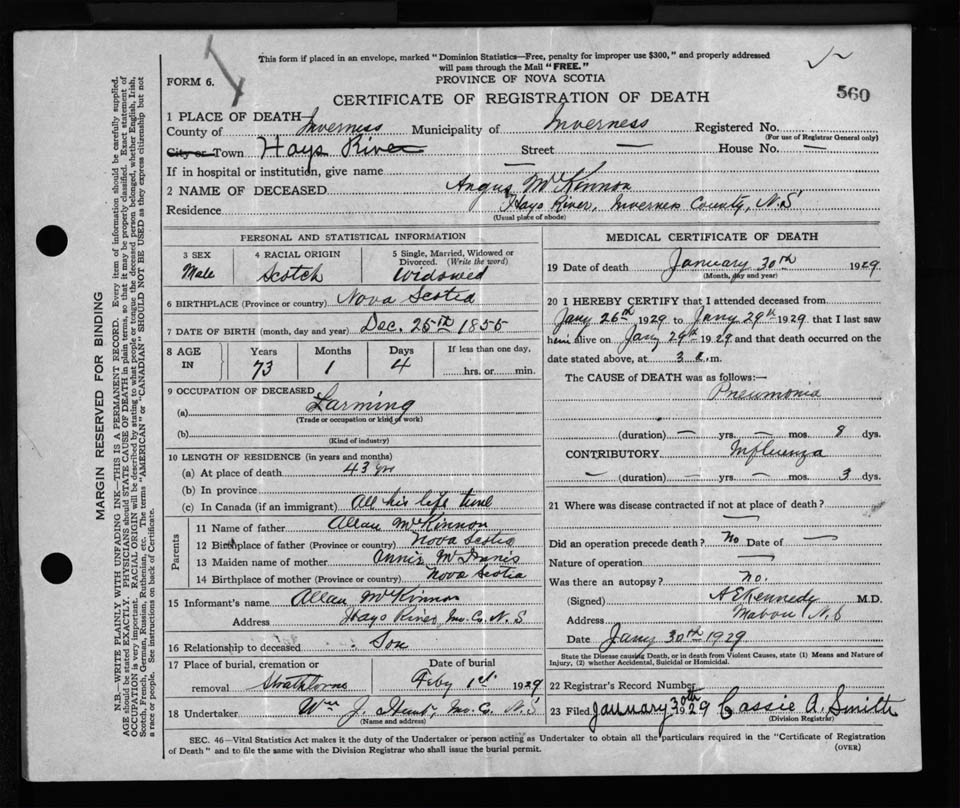 This form if placed in an envelope, marked "Dominion Statistics—Free, penalty for improper use $300," and properly addressed
will pass through the Mail "FREE."
FORM 6.
PROVINCE OF NOVA SCOTIA
CERTIFICATE OF REGISTRATION OF DEATH
560
1 PLACE OF DEATH—
County of Inverness Municipality of Inverness Registered No.
(For use of Registrar General only)
City or Town Hays River Street — House No. —
If in hospital or institution, give name —
2 NAME OF DECEASED Angus McKinnon
Residence Hays River, Inverness County, N.S
(Usual place of abode)
PERSONAL AND STATISTICAL INFORMATION
3 SEX
Male
4 RACIAL ORIGIN
Scotch
5 Single, Married, Widowed or
Divorced. (Write the word)
Widowed
6 BIRTHPLACE (Province or country) Nova Scotia
7 DATE OF BIRTH (month, day and year) Dec. 25th 1855
8 AGE
IN
Years
73
Months
1
Days
4
If less than one day,
hrs. or min.
9 OCCUPATION OF DECEASED
(a) Farming
(Trade or occupation or kind of work)
(b)
(Kind of industry)
10 LENGTH OF RESIDENCE (in years and months)
(a) At place of death 43 yrs
(b) In province
(c) In Canada (if an immigrant) All his life time
Parents
11 Name of father Allan McKinnon
12 Birthplace of father (Province or country) Nova Scotia
13 Maiden name of mother Annie McInnis
14 Birthplace of mother (Province or country) Nova Scotia
15 Informant's name Allan McKinnon
Address Hays River, Inv. Co. N. S
16 Relationship to deceased Son
17 Place of burial, cremation or
removal Strathlorne
Date of burial
Feby 1st 1929
18 Undertaker Wm J. Hunt, Inv. Co. N. S
(Name and address)
MEDICAL CERTIFICATE OF DEATH
19 Date of death January 30th 1929
(Month, day and year)
20 I HEREBY CERTIFY that I attended deceased from
Jany 26th 1929 to Jany 29th 1929 that I last saw
him alive on Jany 29th 1929 and that death occurred on the
date stated above, at 3 a.m.
The CAUSE of DEATH was as follows:—
Pneumonia
(duration) — yrs. — mos. 8 dys.
CONTRIBUTORY Influenza
— (duration) — yrs. — mos. 3 dys.
21 Where was disease contracted if not at place of death?
—
Did an operation precede death? No Date of —
Nature of operation —
Was there an autopsy? no.
(Signed) A E Kennedy M.D.
Address Mabou N.S
Date Jany 30th 1929
State the Disease causing Death, or in death from Violent Causes, state (1) Means and Nature of
Injury, (2) whether Accidental, Suicidal or Homicidal.
22 Registrar's Record Number
23 Filed January 30th 1929 Cassie A. Smith
(Division Registrar)
SEC. 46—Vital Statistics Act makes it the duty of the Undertaker or person acting as Undertaker to obtain all the particulars required in the "Certificate of Registration
of Death" and to file the same with the Division Registrar who shall issue the burial permit.
(OVER)
MARGIN RESERVED FOR BINDING
N.B.—WRITE PLAINLY, WITH UNFADING INK—THIS IS A PERMANENT RECORD. Every item of information should be carefully supplied.
AGE should be stated EXACTLY. PHYSICIANS should STATE CAUSE OF DEATH in plain terms, so that it may be properly classified. Exact statement of
OCCUPATION is very important. RACIAL ORIGIN will be described by stating to what people or tongue the deceased person belonged, whether English, Irish,
Scotch, French, German, Russian, Ruthenian, etc. The terms "AMERICAN" or "CANADIAN" SHOULD NOT BE USED as they express citizenship but not
a race or people. See instructions on back of Certificate.